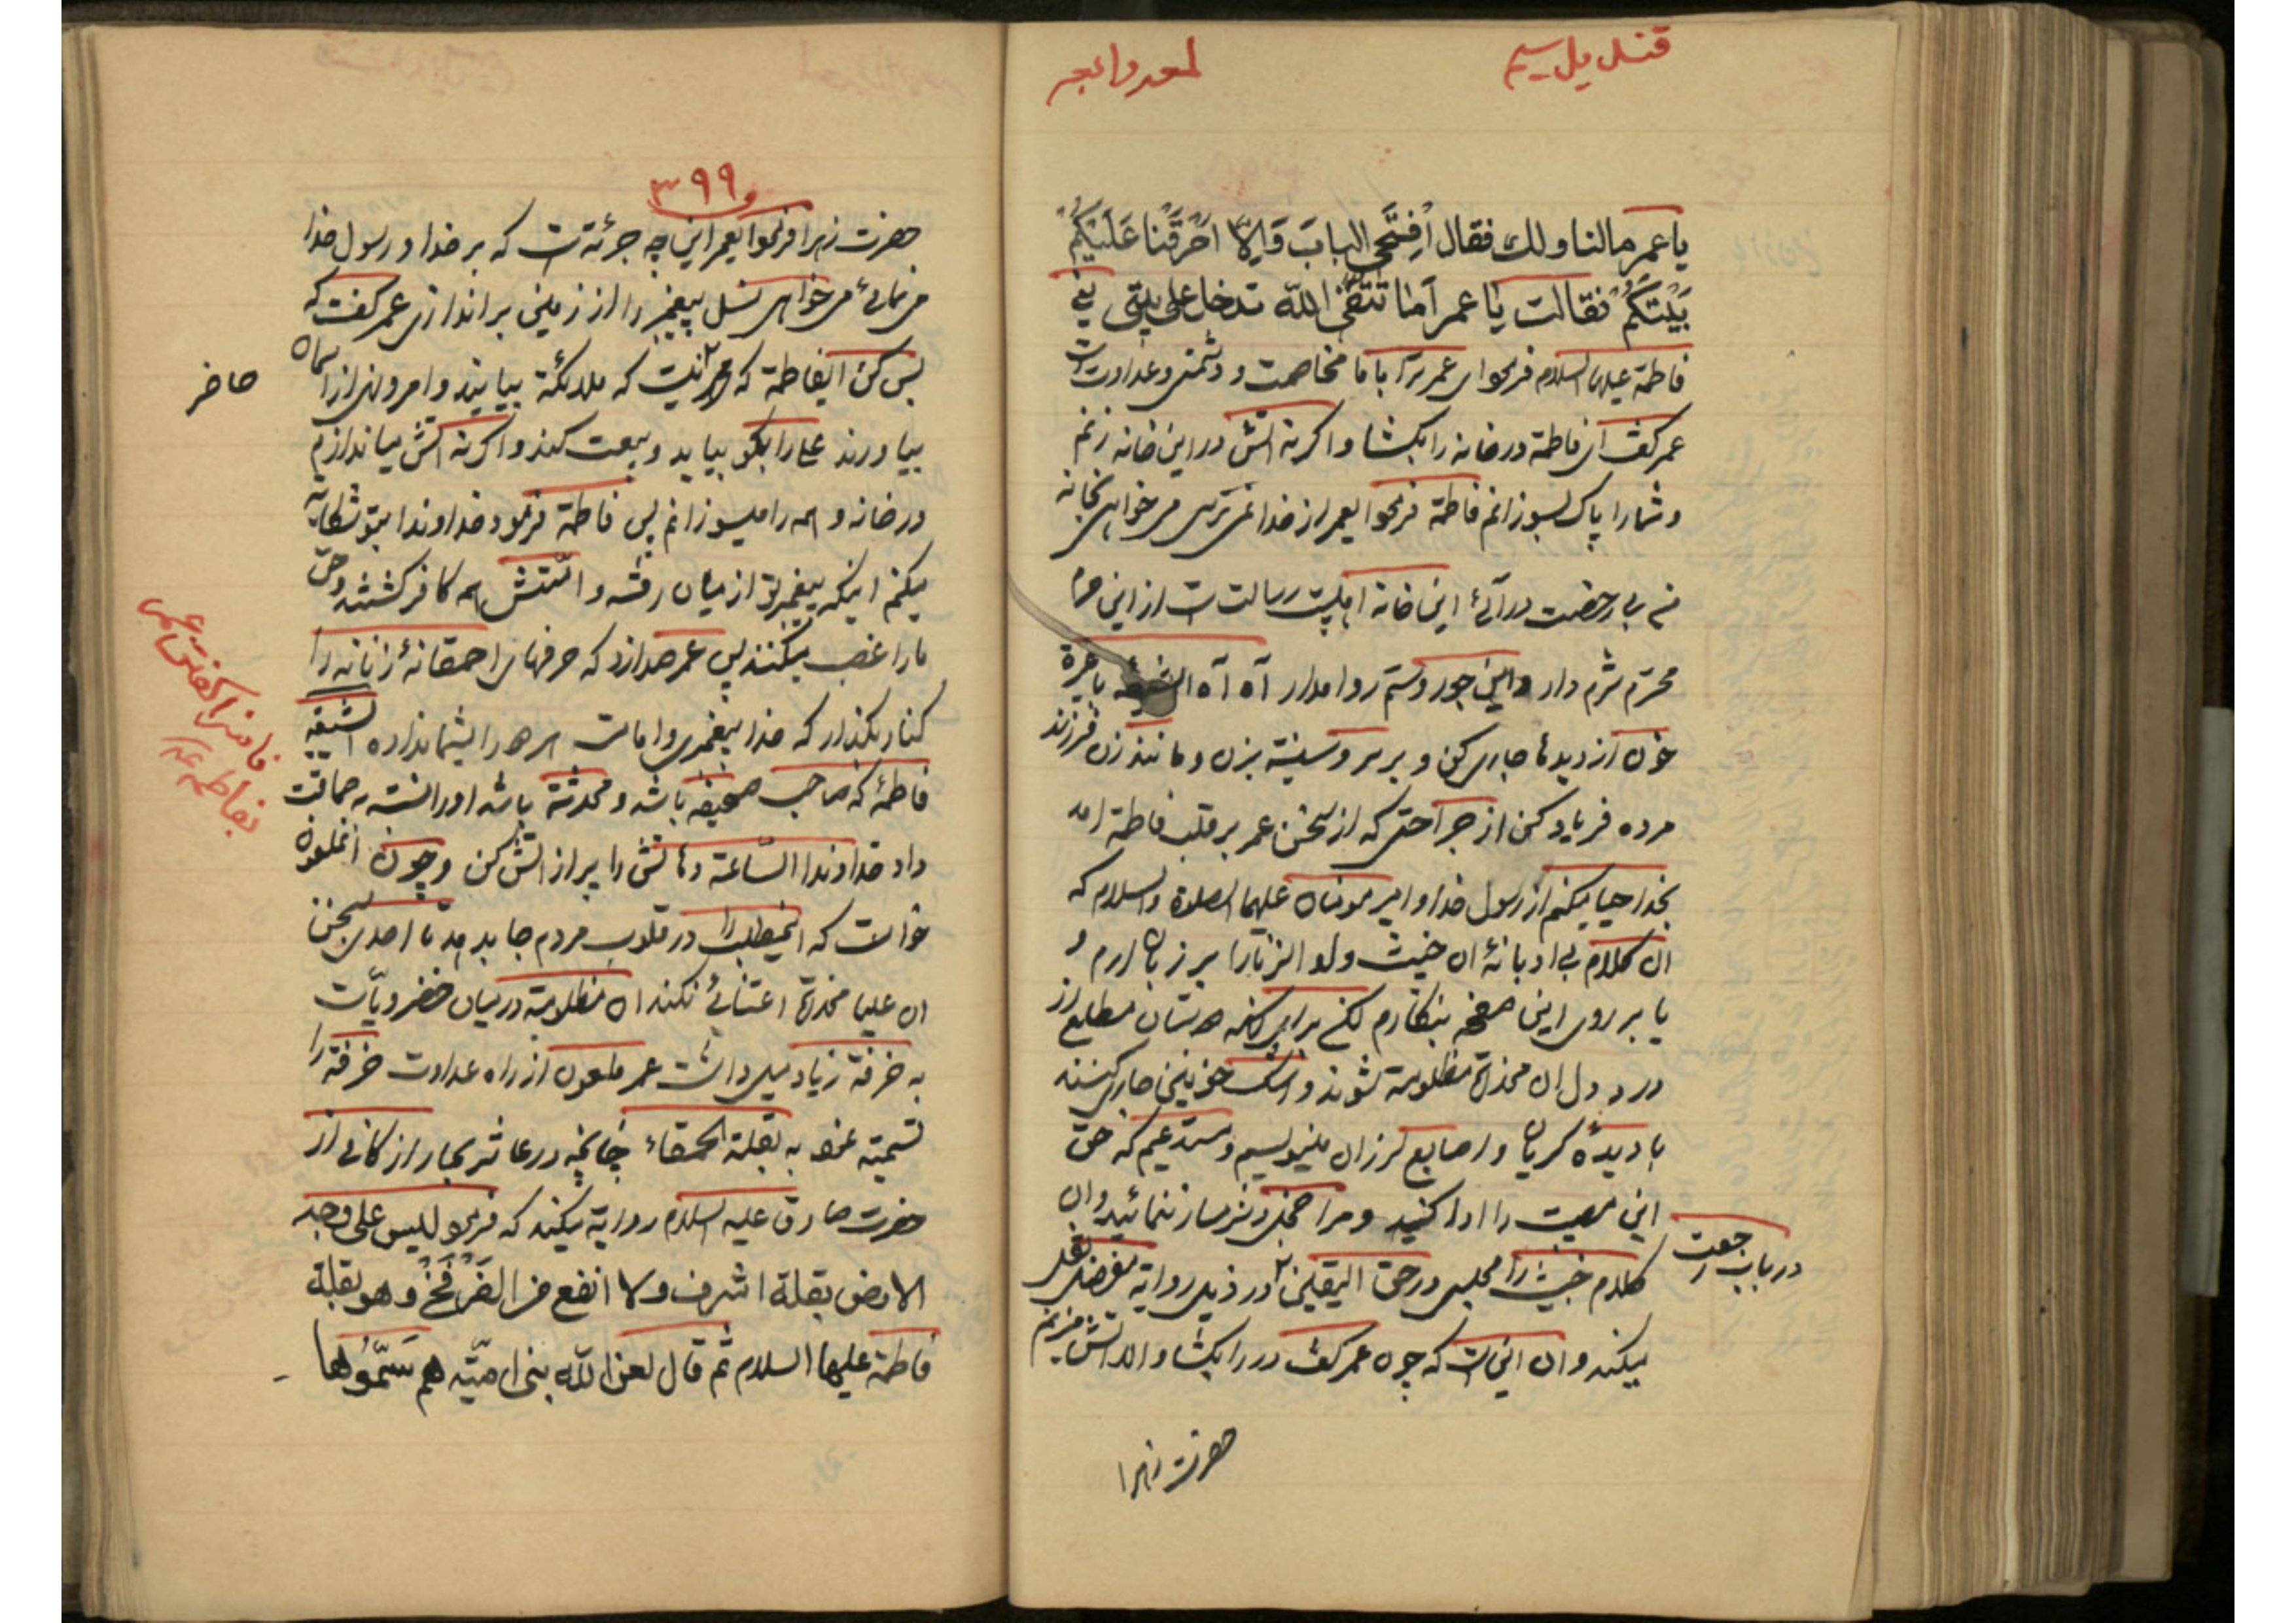 قندیل سیم
لمعه رابعه
یا عمر مالنا ولك فقال اِفتَحی البابَ وَاِلّا اَحرَقنا عَلَیکُم
بَیتَکُم فقالت یا عمر اَما تَتَّقی اللّه تدخل علی بیتی یعنی
فاطمة علیها السلام فرمود ای عمر ترا با ما مخاصمت و دشمنی و عداوت است
عمر گفت ای فاطمة در خانه را بکشا و اگر نه اتش در این خانه زنم
و شما را پاک بسوزانم فاطمة فرمود ایعمر از خدا نمی ترسی می خواهی بخانه
من بی رخصت درآئی این خانه اهلبیت رسالت است از این حرم
محترم شرم دار و این جور و ستم روا مدار آه آه الشیعه باغیرة
خون از دیدها جاری کن و بر سر و سینه بزن و مانند زن فرزند
مرده فریاد کن از جراحتی که از سخن عمر بر قلب فاطمة امد
بخدا حیا میکنم از رسول خدا و امیر مومنان علیهما الصلوة والسلام که
ان کلام بی ادبانهٔ ان خبیث ولد الزنا را بر زبان ارم و
یا بر روی این صفحه بنگارم لکن برای انکه دوستان مطلع از
درد دل ان مخدرة مظلومة شوند و اشک خونین جاری کنند
با دیدهٔ گریان و اصابع لرزان مینویسم و مستدعیم که حق
این مصیبت را ادا کنید و مرا خجل و شرمسار ننمائید و ان
کلام خبیث را مجلسی در حق الیقین در ذیل روایة مفضل نقل
در باب رجعت
میکند و ان این است که چون عمر گفت در را بکشا و الا اتش میزنم
حضرت زهرا
۳۹۹
حضرت زهرا فرمود ایعمر این چه جرئة است که بر خدا و رسول خدا
می نمائی می خواهی نسل پیغمبر را از زمین براندازی عمر گفت که
بس کن ایفاطمة که محمد نیست که ملائکة بیایند و امر و نهی از اسمان
حاضر
بیاورند علی را بگو بیاید و بیعت کند و اگر نه اتش میاندازم
در خانه و همه را میسوزانم پس فاطمة فرمود خداوندا بتو شکایة
میکنم اینکه پیغمبر تو از میان رفته و امّتش همه کافر گشتند و حق
ما را غصب میکنند پس عمر صدا زد که حرفهای احمقانهٔ زنانه را
کنار بگذار که خدا پیغمبری و امامت هر دو را بشما نداده الشیعه
فاطمهٔ که صاحب صحیفه باشد و محدثة باشد او را نسبت به حماقت
داد خداوندا السّاعة دهانش را پر از اتش کن و چون انملعون
خواست که اینمطلب را در قلوب مردم جا بدهد تا احدی بسخن
ان علیا مخدرة اعتنائی نکند ان مظلومة در میان خضرویّات
به خرفة زیاد میل داشت عمر ملعون از راه عداوت خرفة را
تسمیة نمود به بقلة الحمقاء چنانچه در عاشر بحار از کافی از
حضرت صادق علیه السلام روایة میکند که فرمود لیس علی وجه
الارض بقلة اشرف ولا انفع من الفَرفَخ وهو بقلة
فاطمة علیها السلام ثم قال لعن اللّه بنی امیّه هم سَمَّوها